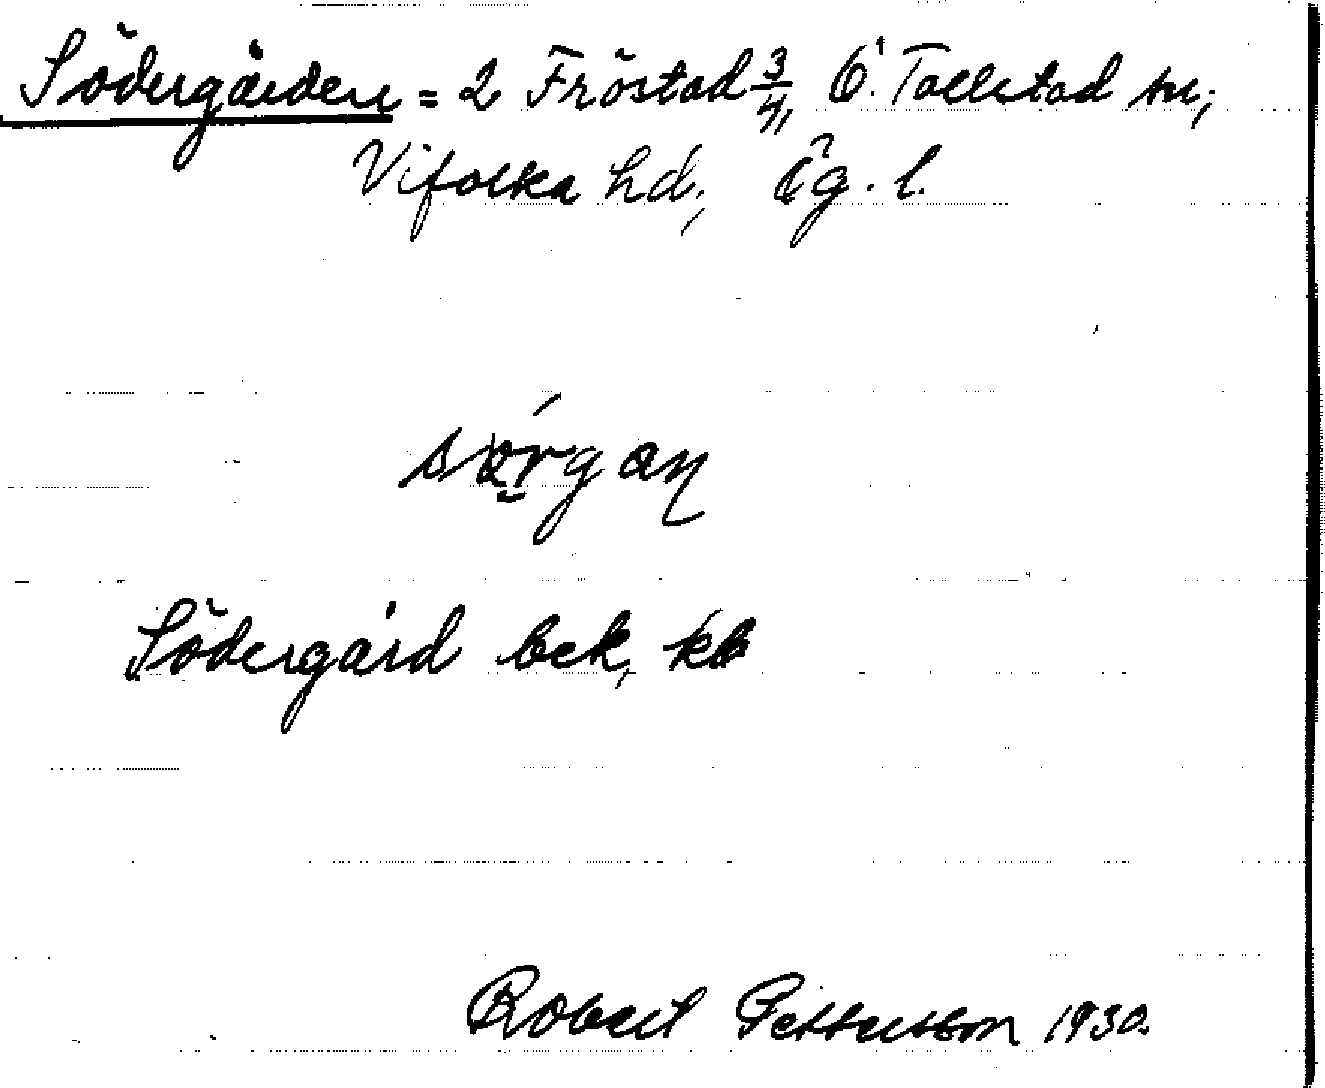 Södergården = 2 Fröstad 3/4, Ö. Tollstad sn,
Vifolka hd, Ög. l.
Södergård bek, kb
Robert Pettersson 1930.